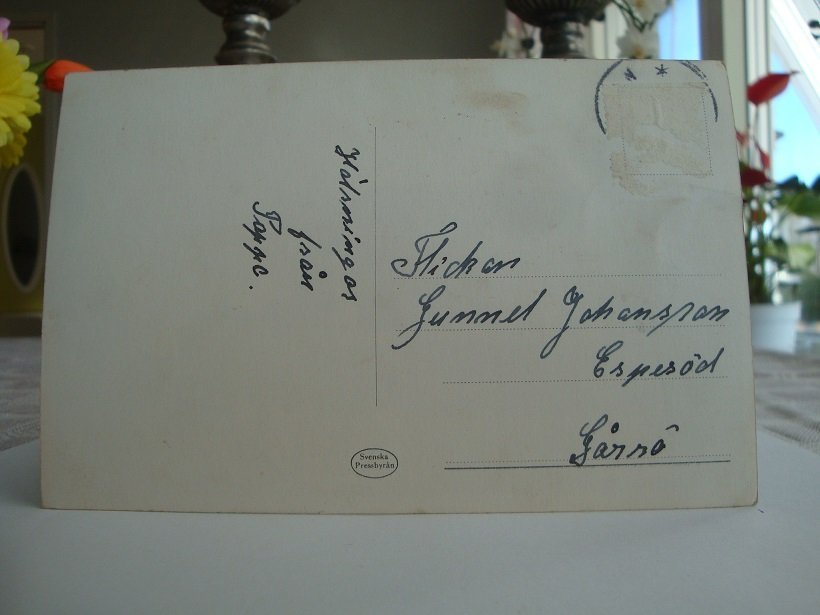 Hälsningar
från
Pappa.
Flickan
Gunnel Johansson
Espesöd
Gårrö
Svenska
Pressbyrån